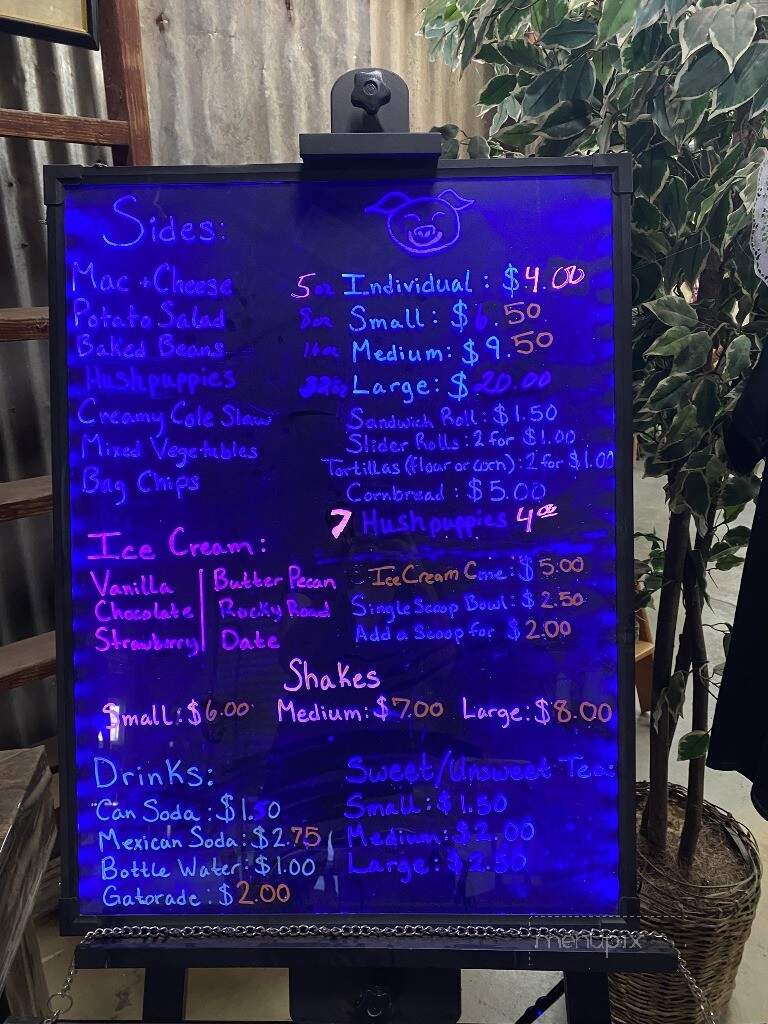 Sides:
Mac + Cheese
Potato Salad
Baked Beans
Hushpuppies
Creamy Cole Slaw
Mixed Vegetables
Bag Chips
5oz Individual : $4.00
8oz Small : $6.50
16oz Medium: $9.50
32oz Large: $20.00
Sandwich Roll: $1.50
Slider Rolls: 2 for $1.00
Tortillas (flour or corn): 2 for $1.00
Cornbread : $5.00
7 Hushpuppies 4.00
Ice Cream:
Vanilla | Butter Pecan
Chocolate | Rocky Road
Strawberry | Date
Ice Cream Cone: $5.00
Single Scoop Bowl: $2.50
Add a Scoop for $2.00
Shakes
Small: $6.00 Medium: $7.00 Large: $8.00
Drinks:
Can Soda : $1.50
Mexican Soda: $2.75
Bottle Water: $1.00
Gatorade : $2.00
Sweet/Unsweet Tea:
Small: $1.50
Medium: $2.00
Large: $2.50
menupix